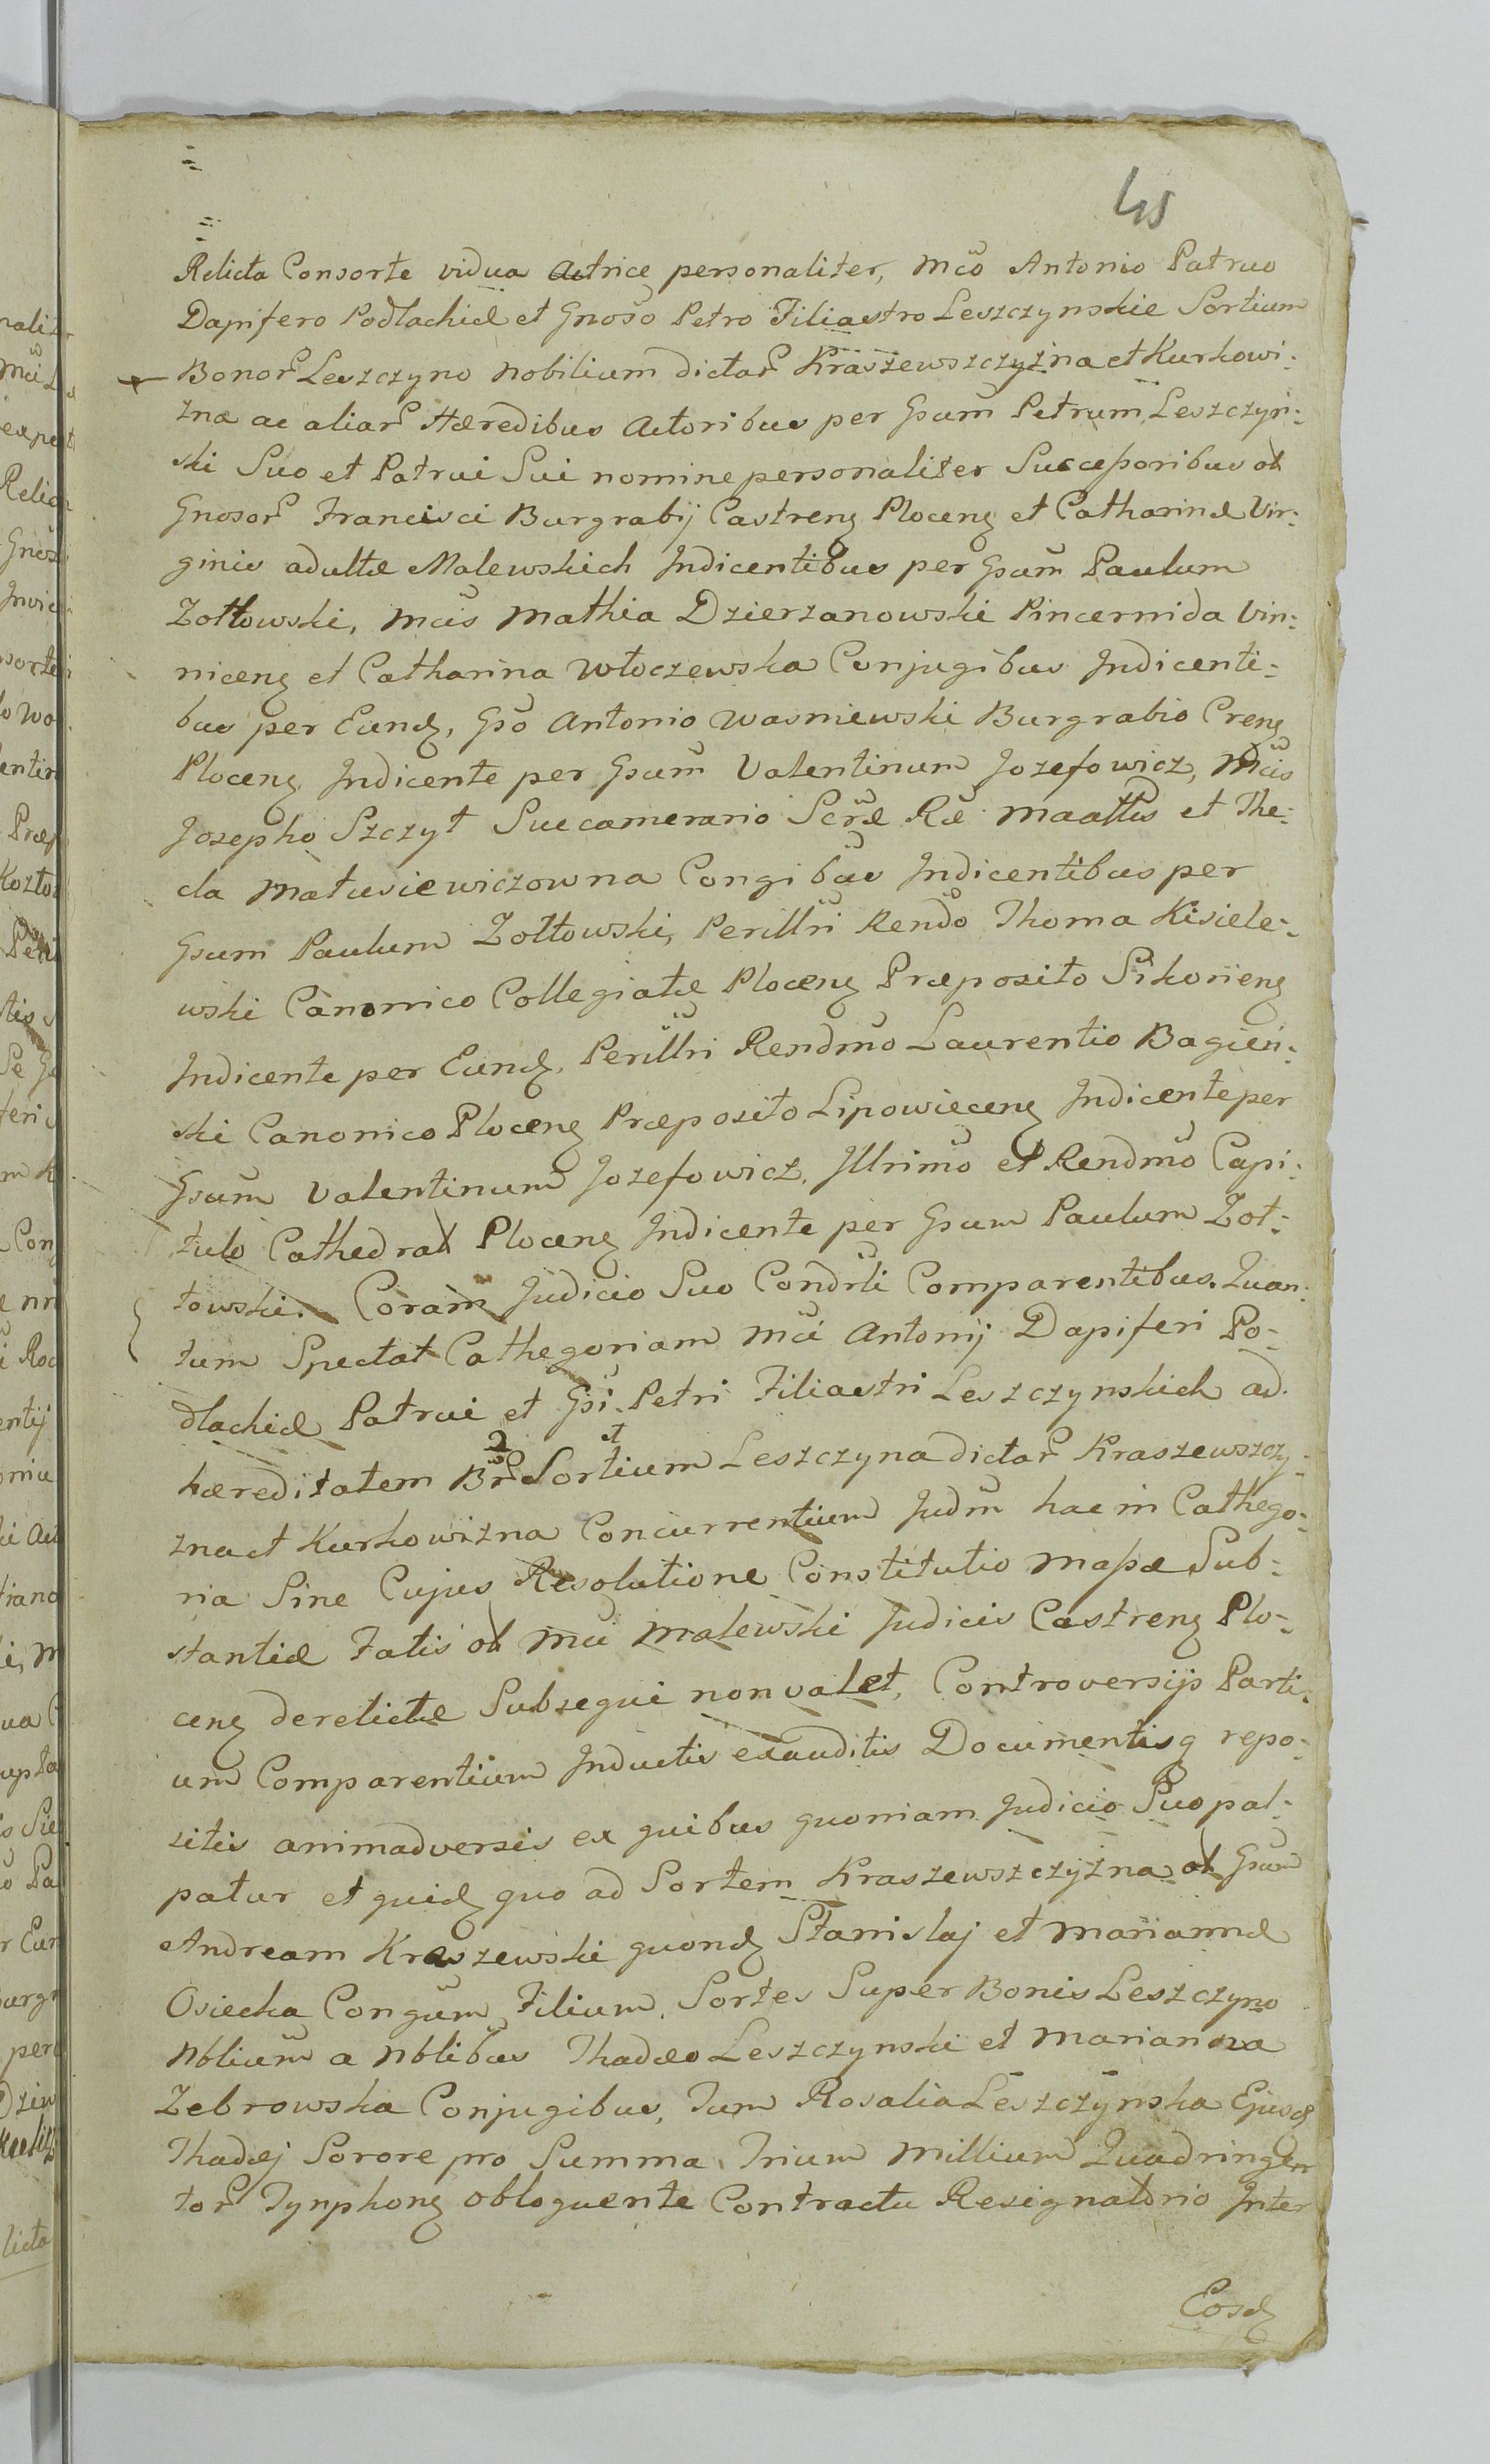 45
Relicta Consorte vidua Actrice personaliter, Mco Antonio Patruo
Dapifero Podlachiæ et Gnoso Petro Filiastro Leszczynskie Sortium
Bonor Leszczyno Nobilium dictar Kraszewszczyzna et Kurkowi:
zna ac aliar Hæredibus Actoribus per Gsum Petrum Leszczyn:
ski Suo et Patrui Sui nomine personaliter Successoribus ol
Gnosor Francisci Burgrabij Castren Plocen et Catharinæ Vir:
ginis adultæ Malewskich Indicentibus per Gsum Paulum
Zołtowski, Mcis Mathia Dzierzanowski Pincernida Vin:
nicen et Catharina Włoczewska Conjugibus Indicenti:
bus per Eund, Gso Antonio Wasniewski Burgrabio Cren
Plocen Indicente per Gsum Valentinum Jozefowicz, Mcis
Josepho Szczyt Succamerario Scræ Ræ Maattis et The:
cla Matusiewiczowna Congibus Indicentibus per
Gsum Paulum Zołtowski, Perillri Rendo Thoma Kisiele:
wski Canonico Collegiatæ Plocen Præposito Sikorien
Indicente per Eund, Perillri Rendmo Laurentio Bagień:
ski Canonico Plocen Præposito Lipowiecen Indicente per
Gsum Valentinum Jozefowicz, Illrimo et Rendmo Capi:
tulo Cathedral Plocen Indicente per Gsum Paulum Zoł:
towski. Coram Judicio Suo Condrli Comparentibus. Quan:
tum Spectat Cathegoriam Mci Antonij Dapiferi Po:
dlachiæ Patrui et Gsi Petri Filiastri Leszczynskich ad
hæreditatem Br et Sortium Leszczyna dictar Kraszewszczy:
zna et Kurkowizna Concurrentium Judm hac in Cathego:
ria Sine Cujus Resolutione Constitutio Massæ Sub:
stantiæ Fatis ol Mci Malewski Judicis Castren Plo:
cen derelictæ Subsequi non valet, Controversijs Parti:
um Comparentium Inductis exauditis Documentisq repo:
sitis animadversis ex quibus quoniam Judicio Suo pal:
patur et quid quo ad Sortem Kraszewszczyzna ol Gsum
Andream Kraszewski quond Stanislaj et Mariannæ
Osiecka Congum Filium, Sortes Super Bonis Leszczyno
Nblium a Nblibus Thadæo Leszczynski et Marianna
Zebrowska Conjugibus, Tum Rosalia Leszczynska Ejusd
Thadæj Sorore pro Summa Trium Millium Quadringen
tor Tynphon obloquente Contractu Resignatorio Inter
Eosd